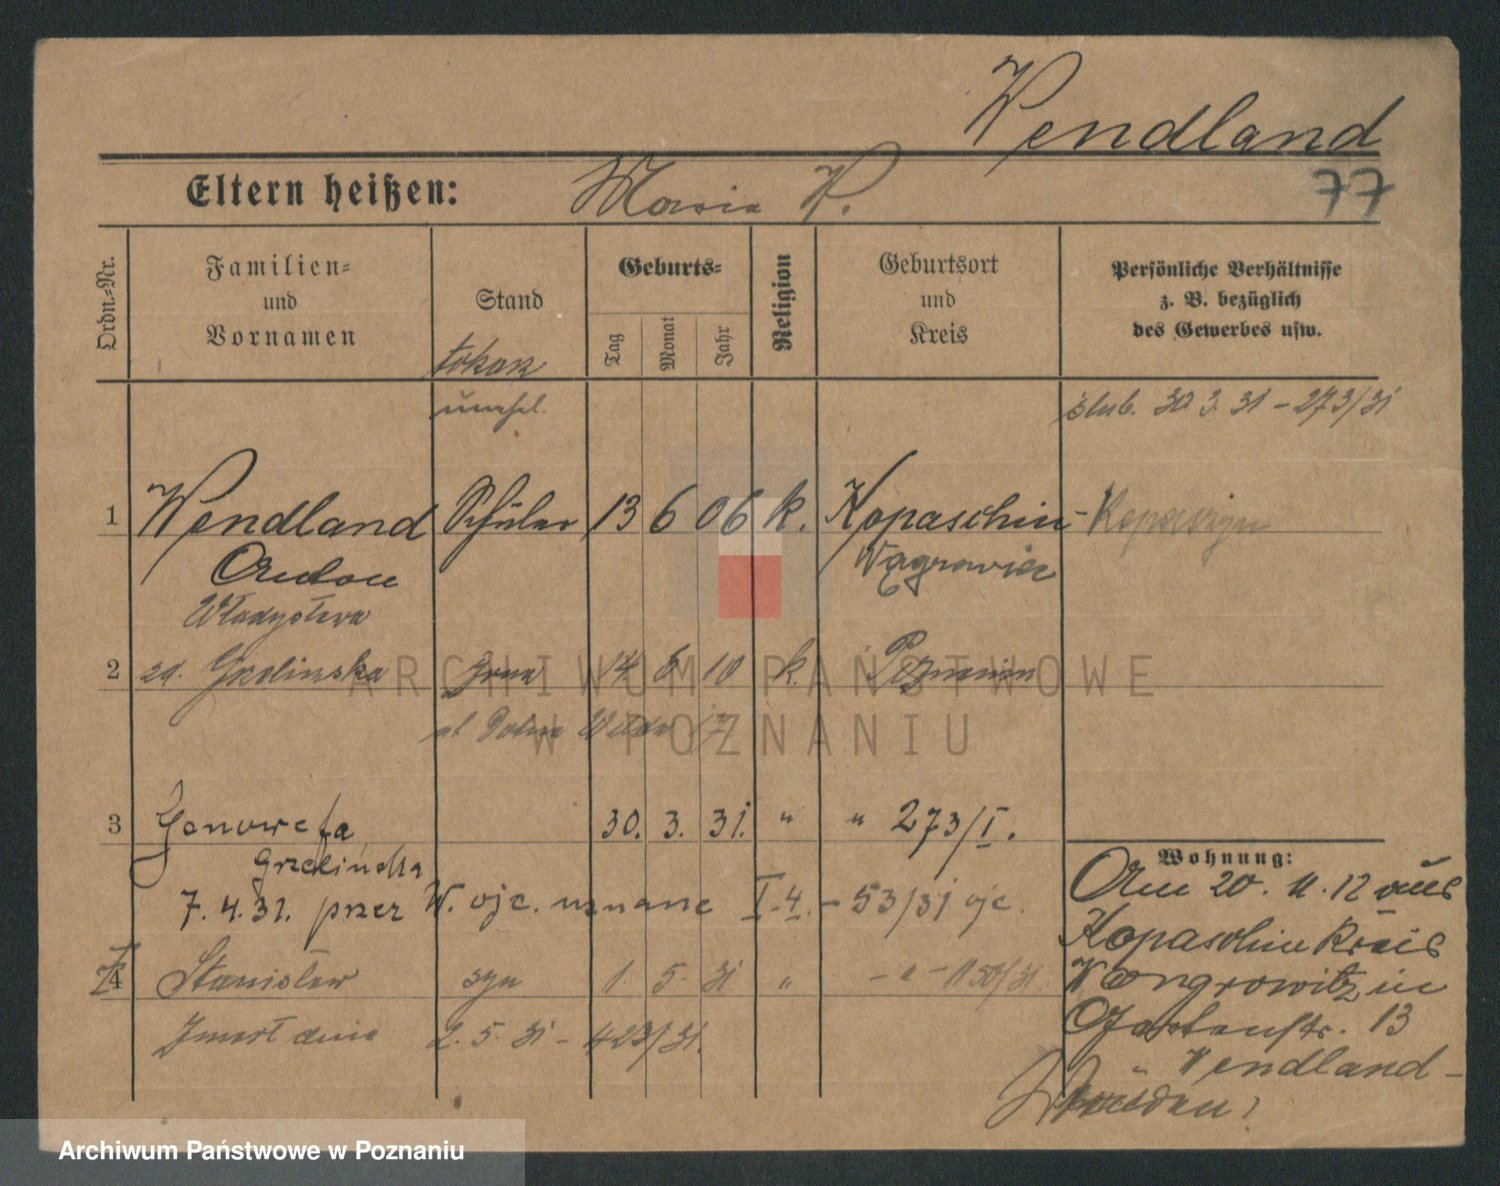 Wendland
77
Eltern heißen: Maria W.
Ordn.-Nr.
Familien- und Vornamen
Stand
Geburts-
Tag
Monat
Jahr
Religion
Geburtsort und Kreis
Persönliche Verhältnisse z. B. bezüglich des Gewerbes usw.
tokarz
ślub. 30 3. 31 - 273/31
1 Wendland Schüler 13 6 06 k. Kopaschin - Kopaszyn
Anton Wągrowiec
Władysława
2 zd. Grzelinska żona 14 6 10 k. Poznaniu
ul Dolna Wilda 17
3 Genowefa 30. 3. 31. " " 273/I.
Grzelińska
7. 4. 31. przez W. ojc. uznane I. 4. - 53/31 ojc.
4 Stanisław syn 1. 5. 31 " - " - 1150/31.
Zmarł dnia 2. 5. 31 - 423/31.
Wohnung:
Am 20. 11. 12 aus
Kopaschin Kreis
Wongrowitz in
Gartenstr. 13
" Wendland -
ARCHIWUM PAŃSTWOWE
W POZNANIU
Archiwum Państwowe w Poznaniu